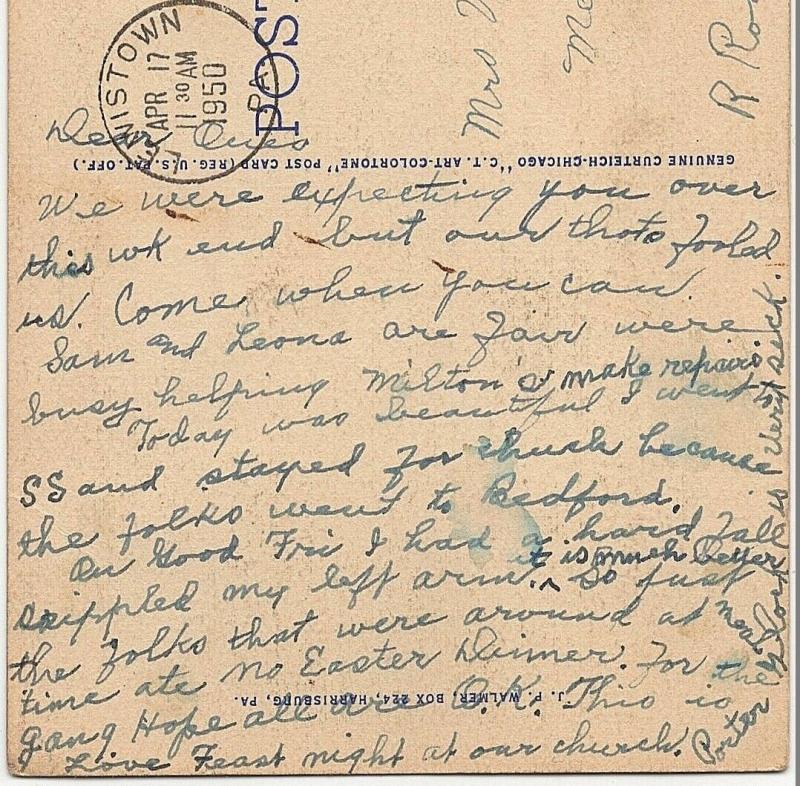 WISTOWN
APR 17
11 30 AM
1950
PA.
POST
Mrs
R
Dear Ones
GENUINE CURTEICH-CHICAGO "C.T. ART-COLORTONE" POST CARD (REG. U.S. PAT. OFF.)
We were expecting you over
this wk end but our thots fooled
us. Come when you can.
Sam and Leona are fair were
busy helping Milton's make repairs
Today was beautiful I went to
SS and stayed for chuch because
the folks went to Bedford.
On Good Fri I had a hard fall
crippled my left arm. it is much better So just
the folks that were around at meal
time ate no Easter Dinner. For the
J. P. WALMER, BOX 224, HARRISBURG, PA.
gang Hope all are O.K. This is
Love Feast night at our church.
Porter is very sick.